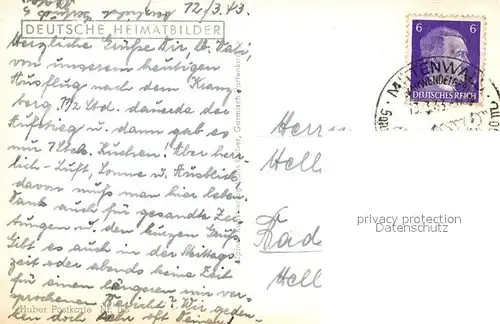 12/3.43.
DEUTSCHE HEIMATBILDER
Herzliche Grüße Dir, lb.
von unserem heutigen
Ausflug nach dem Kranz-
berg 1½ Std. dauerte der
Aufstieg u. dann gab es
nur 1 Stck. Kuchen! Aber herr-
lich - Luft, Sonne u. Ausblick,
davon muß man hier leben.
Dank auch für gesandte Zei-
tungen u. den kurzen Gruß.
Gilt es auch in der Mittags-
zeit oder abends keine Zeit
für einen längeren mir ver-
sprochenen Bericht? Wir geden-
ken doch sehr oft Deiner,
Huber Postkarte Nr. 
6 6
DEUTSCHES REICH
MITTENWALD
Herrn
Hell
Rad
Hell
privacy protection
Datenschutz